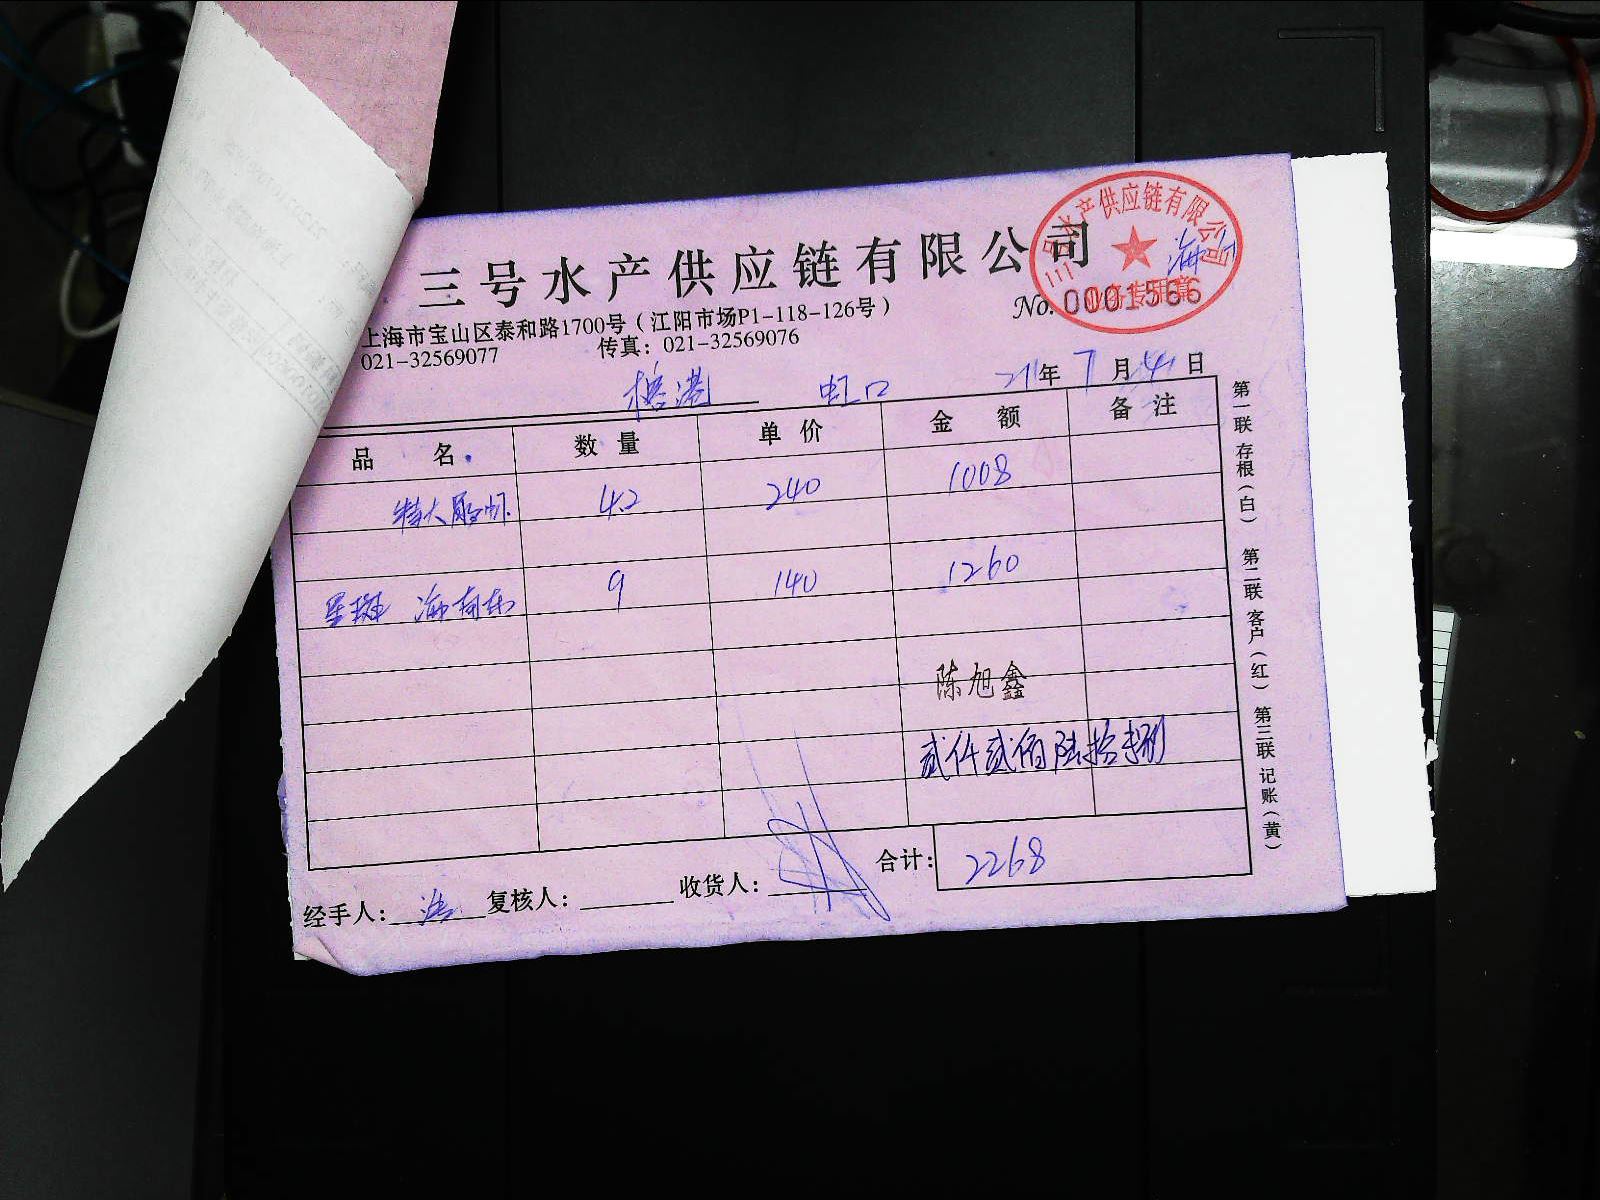 三号水产供应链有限公司
三号水产供应链有限公司
业务专用章
海
上海市宝山区泰和路1700号（江阳市场P1-118-126号）
No. 0001566
021-32569077 传真：021-32569076
榕港 虹口 21年7月24日
品名 数量 单价 金额 备注
特大 4.2 240 1008
星斑 海南东 9 140 1260
陈旭鑫
贰仟贰佰陆拾捌
合计：2268
经手人： 复核人： 收货人：
第一联 存根（白） 第二联 客户（红） 第三联 记账（黄）